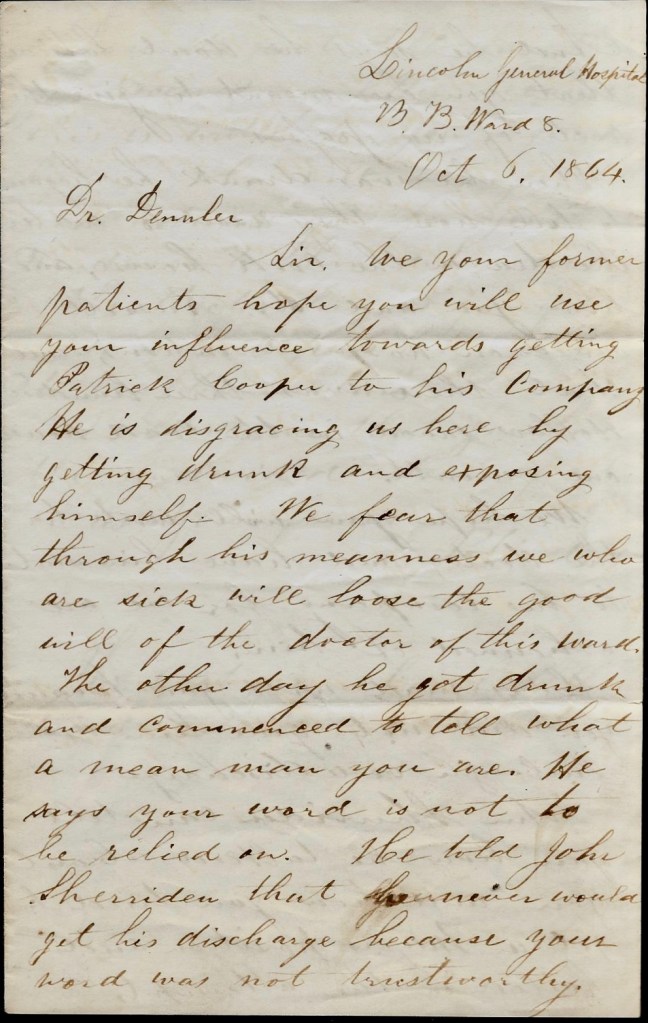 Lincoln General Hospital
B. B. Ward 8.
Oct 6, 1864.
Dr. Dennler
Sir. We your former
patients hope you will use
your influence towards getting
Patrick Cooper to his Company
He is disgracing us here by
getting drunk and exposing
himself. We fear that
through his meanness we who
are sick will loose the good
will of the doctor of this ward.
The other day he got drunk
and commenced to tell what
a mean man you are. He
says your word is not to
be relied on. He told John
Sherriden that never would
get his discharge because your
word was not trustworthy.